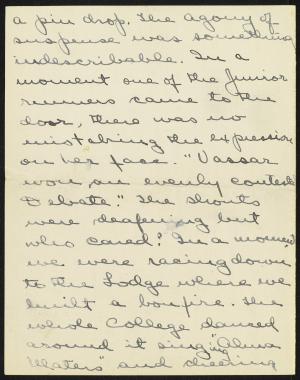 a pin drop. The agony of
suspense was something
indescribable. In a
moment one of the Junior
runners came to the
door, there was no
mistaking the expression
on her face. "Vassar
won, an evenly contested
Debate." The shouts
were deafening but
who cared? In a moment
we were racing down
to the Lodge where we
built a bonfire. The
whole College danced
around it singing "Alma
Maters" and cheering